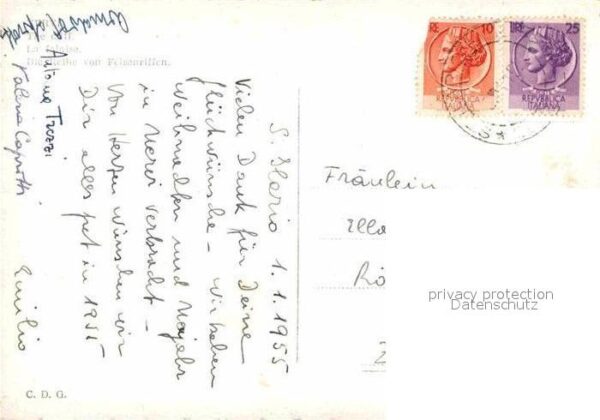 La falaise.
Die Reihe von Felsenriffen.
S. Ilario 1.1.1955
Vielen Dank für Deine
glückwünsche – wir haben
Weihnachten und Neujahr
in Nervi verbracht –
Von Herzen wünschen wir
Dir alles gut in 1955
Emilio
Antonia Tuzzi
Valeria Caprotti
C. D. G.
LIRE 10
REPVBBLICA
ITALIANA
LIRE 25
REPVBBLICA
ITALIANA
Fräulein
Ella
Rö
Z
privacy protection
Datenschutz